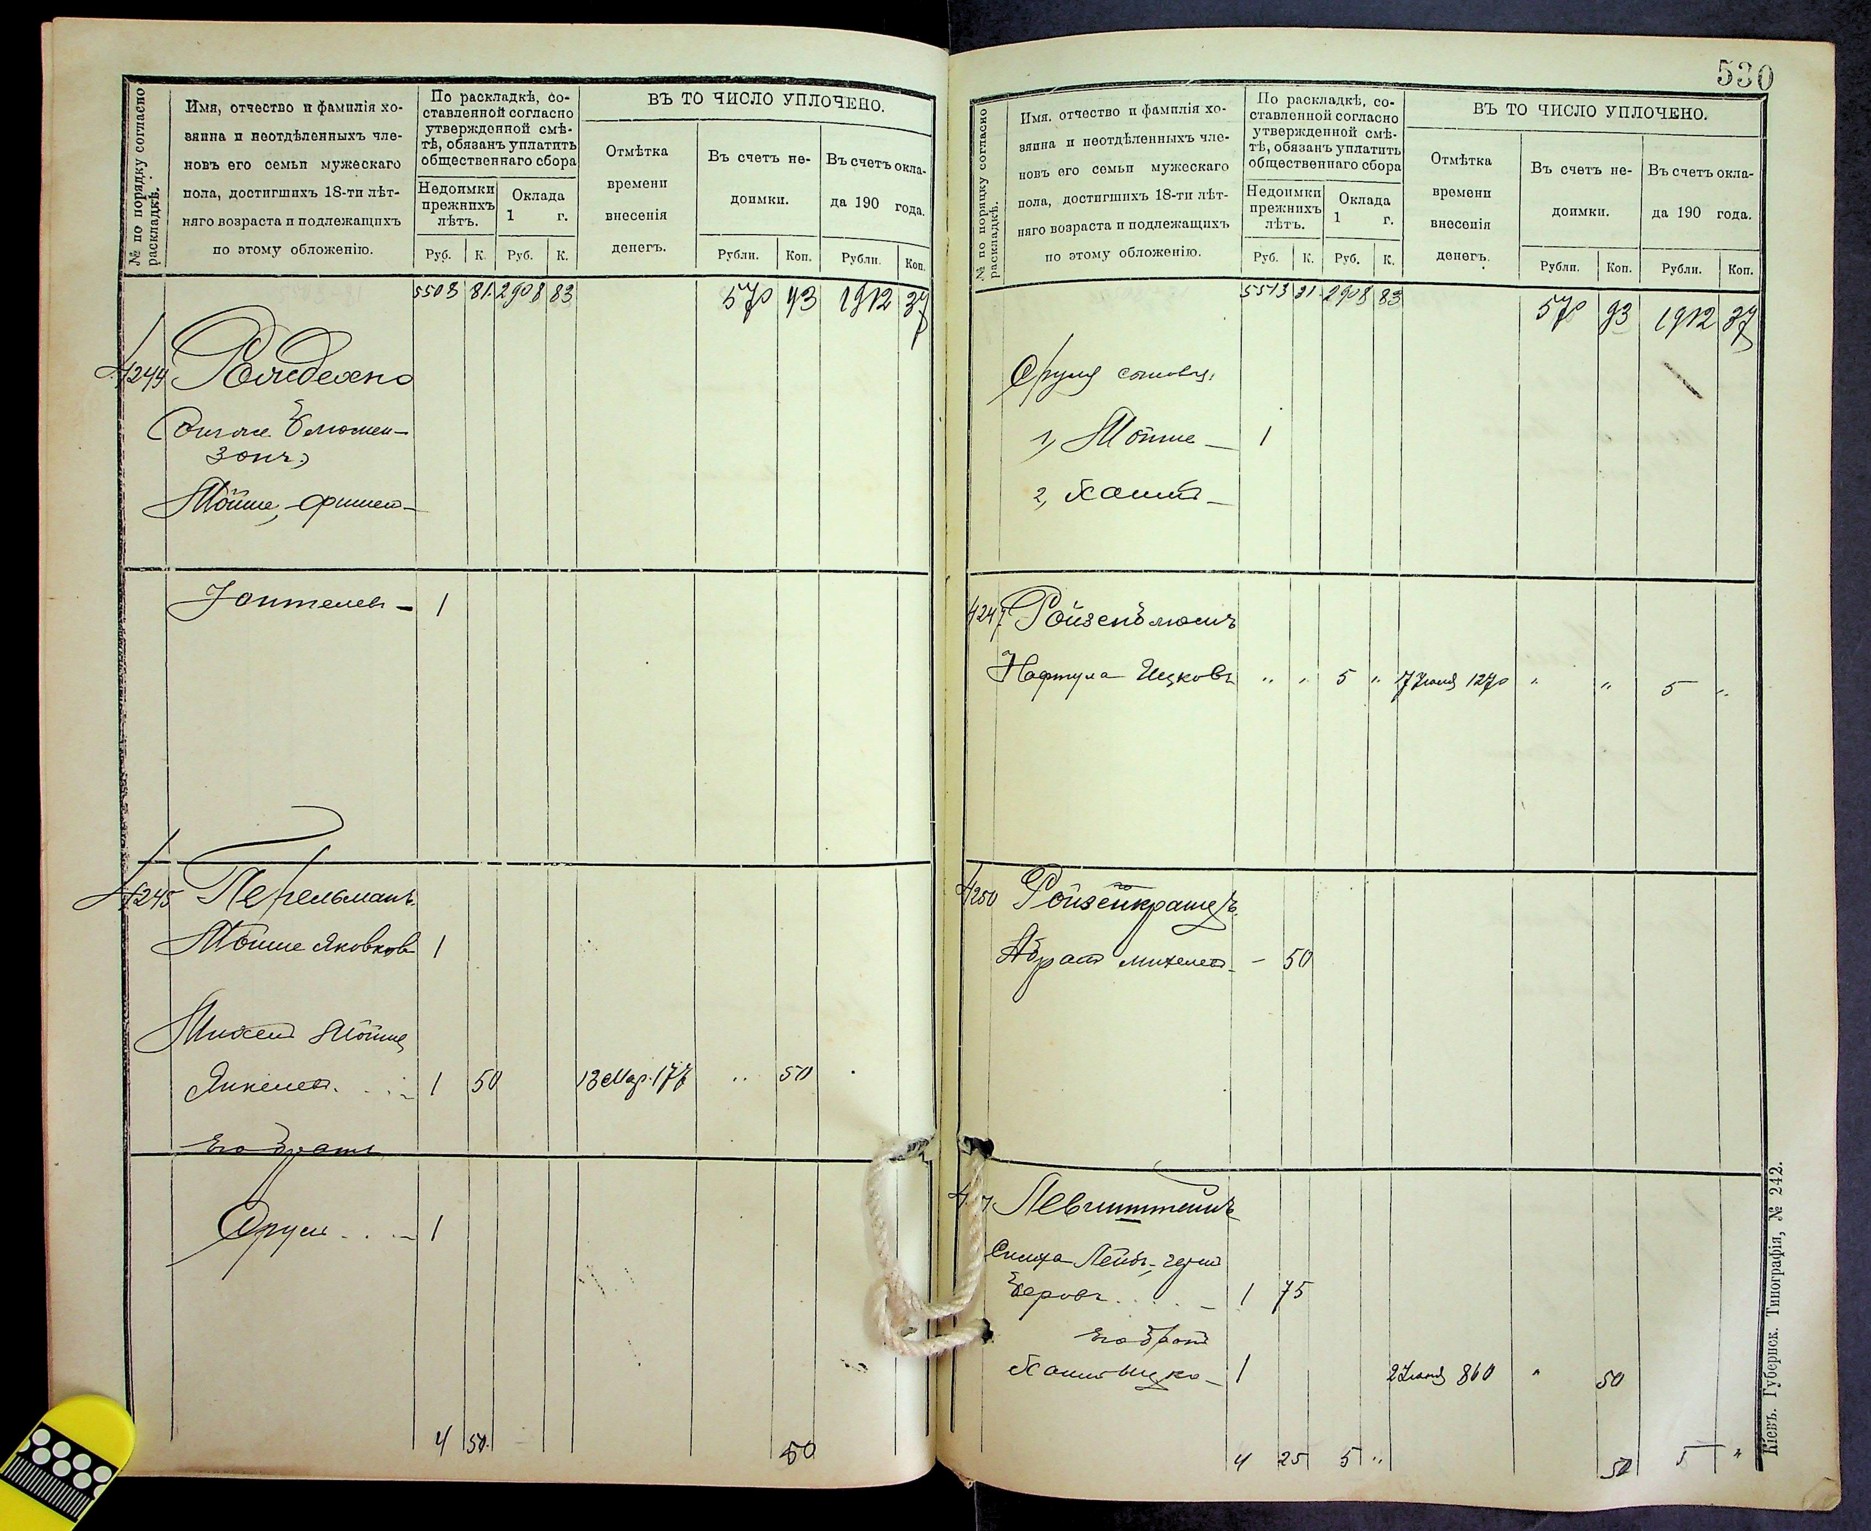 530
№ по порядку согласно раскладкѣ.
Имя, отчество и фамилія хо-
зяина и неотдѣленныхъ чле-
новъ его семьи мужескаго
пола, достигшихъ 18-ти лѣт-
няго возраста и подлежащихъ
по этому обложенію.
По раскладкѣ, со-
ставленной согласно
утвержденной смѣ-
тѣ, обязанъ уплатить
общественнаго сбора
Недоимки
прежнихъ
лѣтъ.
Оклада
1 г.
Руб. К. Руб. К.
ВЪ ТО ЧИСЛО УПЛОЧЕНО.
Отмѣтка
времени
внесенія
денегъ.
Въ счетъ не-
доимки.
Въ счетъ окла-
да 190 года.
Рубли. Коп. Рубли. Коп.
5508 81 2908 83 570 43 1912 37
4244
Мойше
1
4245 Перельманъ
Мойше Янковковъ 1
Михель Мойше
Янкелев. 1 50 13 Мар. 177 " 50
Его братъ
Сруль 1
4 50 50
№ по порядку согласно раскладкѣ.
Имя, отчество и фамилія хо-
зяина и неотдѣленныхъ чле-
новъ его семьи мужескаго
пола, достигшихъ 18-ти лѣт-
няго возраста и подлежащихъ
по этому обложенію.
По раскладкѣ, со-
ставленной согласно
утвержденной смѣ-
тѣ, обязанъ уплатить
общественнаго сбора
Недоимки
прежнихъ
лѣтъ.
Оклада
1 г.
Руб. К. Руб. К.
ВЪ ТО ЧИСЛО УПЛОЧЕНО.
Отмѣтка
времени
внесенія
денегъ.
Въ счетъ не-
доимки.
Въ счетъ окла-
да 190 года.
Рубли. Коп. Рубли. Коп.
5513 31 2908 83 570 93 1912 37
Сруля сыновья:
1, Мойше 1
2, Хаимъ
Ройзенблюмъ
Нафтула Ицковъ " " 5 " 7 Іюля 1270 " " 5 "
4250
Абрамъ Михелев. - 50
Левинштейнъ
Беровъ 1 75
Его братъ
Хаимъ Ицко 1 2 Іюня 860 " 50
4 25 5 " 50 5 "
Кіевъ. Губернск. Типографія, № 242.